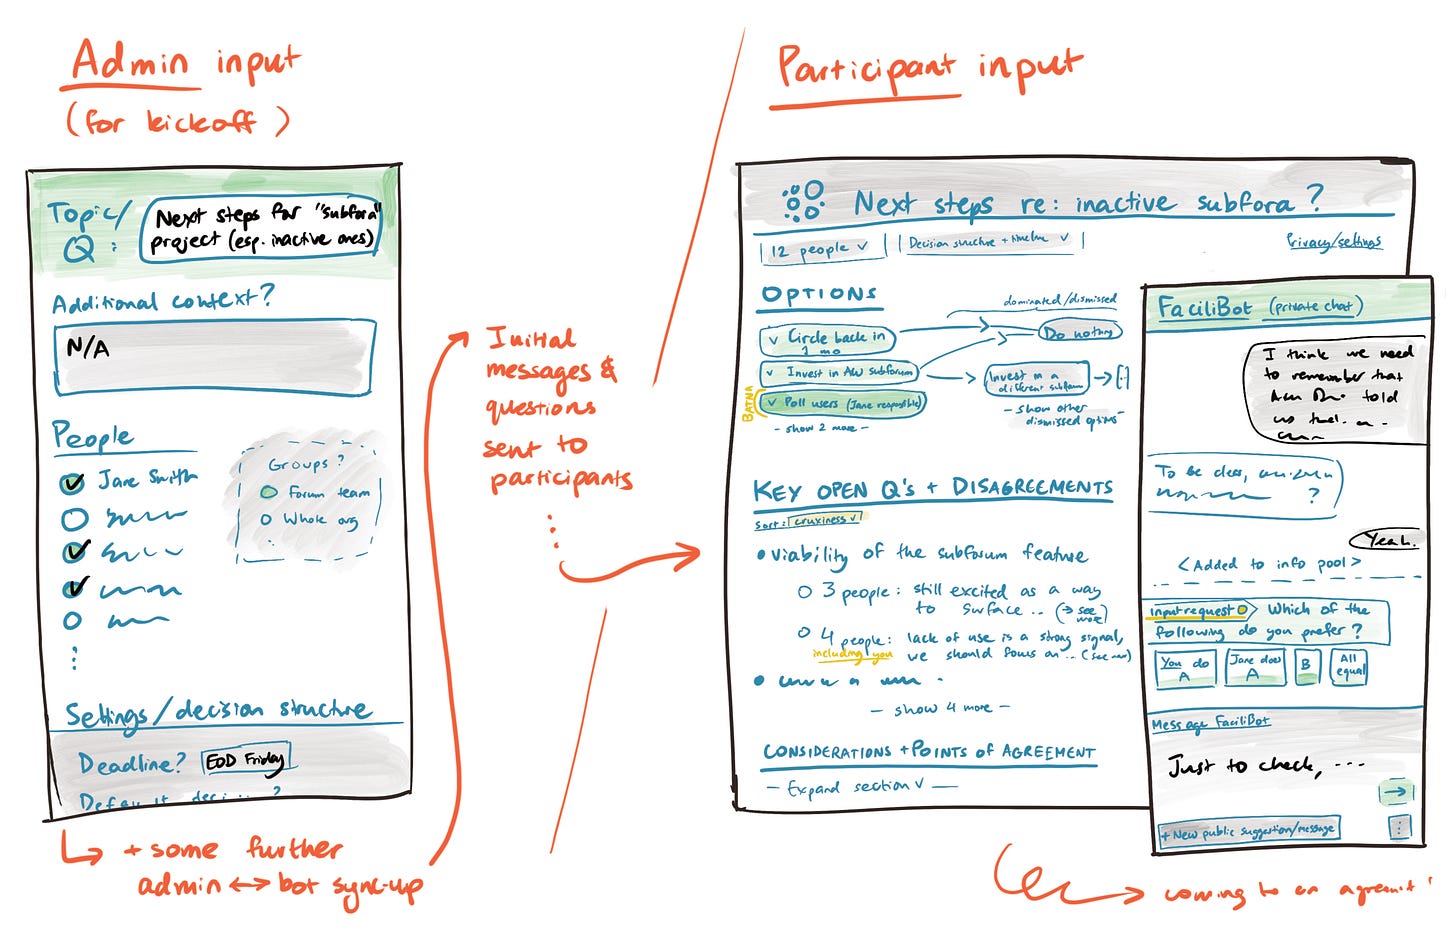 Admin input
(for kickoff)
Topic/
Q:
Next steps for "subfora"
project (esp. inactive ones)
Additional context?
N/A
People
Jane Smith
Groups?
Forum team
Whole org
Settings/decision structure
Deadline? EOD Friday
Default
→ + some further
admin ↔ bot sync-up
Initial
messages &
questions
sent to
participants
Participant input
Next steps re: inactive subfora?
12 people ∨
Decision structure + timeline ∨
Privacy/settings
OPTIONS
dominated/dismissed
∨ Circle back in
1 mo
Do nothing
∨ Invest in AW subforum
Invest in a
different subforum
→ [:]
BATNA
∨ Poll users (Jane responsible)
- show 2 more -
- show other
dismissed options -
KEY OPEN Q'S + DISAGREEMENTS
sort: cruxiness ∨
• Viability of the subforum feature
○ 3 people: still excited as a way
to surface .. (→ see
more)
○ 4 people: lack of use is a strong signal,
including you we should focus on ... (see more)
- show 4 more -
CONSIDERATIONS + POINTS OF AGREEMENT
- Expand section ∨ -
FaciliBot (private chat)
I think we need
to remember that
told
us that
To be clear,
?
Yeah.
<Added to info pool>
Input request Which of the
following do you prefer?
You do
A
Jane does
A
B
All
equal
Message FaciliBot
Just to check, ---
→
+ New public suggestion/message
coming to an agreement